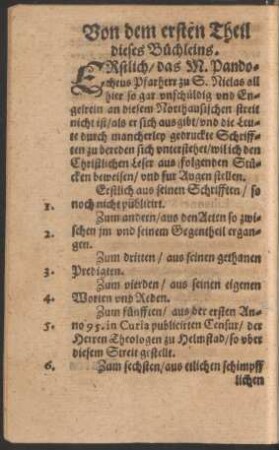 Von dem ersten Theil
dieses Büchleins.
ERstlich/ das M. Pando-
cheus Pfarherr zu S. Niclas all
hier so gar vnschüldig vnd En-
gelrein an diesem Northausischen streit
nicht ist/ als er sich ausgibt/ vnd die Leu-
te durch mancherley gedruckte Schriff-
ten zu bereden sich vnterstehet/ wil ich den
Christlichen Leser aus folgenden Stü-
cken beweisen/ vnd fur Augen stellen.
Erstlich aus seinen Schrifften/ so
1. noch nicht publicirt.
Zum andern/ aus den Acten so zwi-
2. schen jm vnd seinem Gegentheil ergan-
gen.
Zum dritten/ aus seinen gethanen
3. Predigten.
Zum vierden/ aus seinen eigenen
4. Worten vnd Reden.
Zum fünfften/ aus der ersten An-
5. no 95. in Curia publicirten Censur/ der
Herren Theologen zu Helmstad/ so vber
diesem Streit gestellt.
6. Zum sechsten/ aus etlichen schimpff
lichen